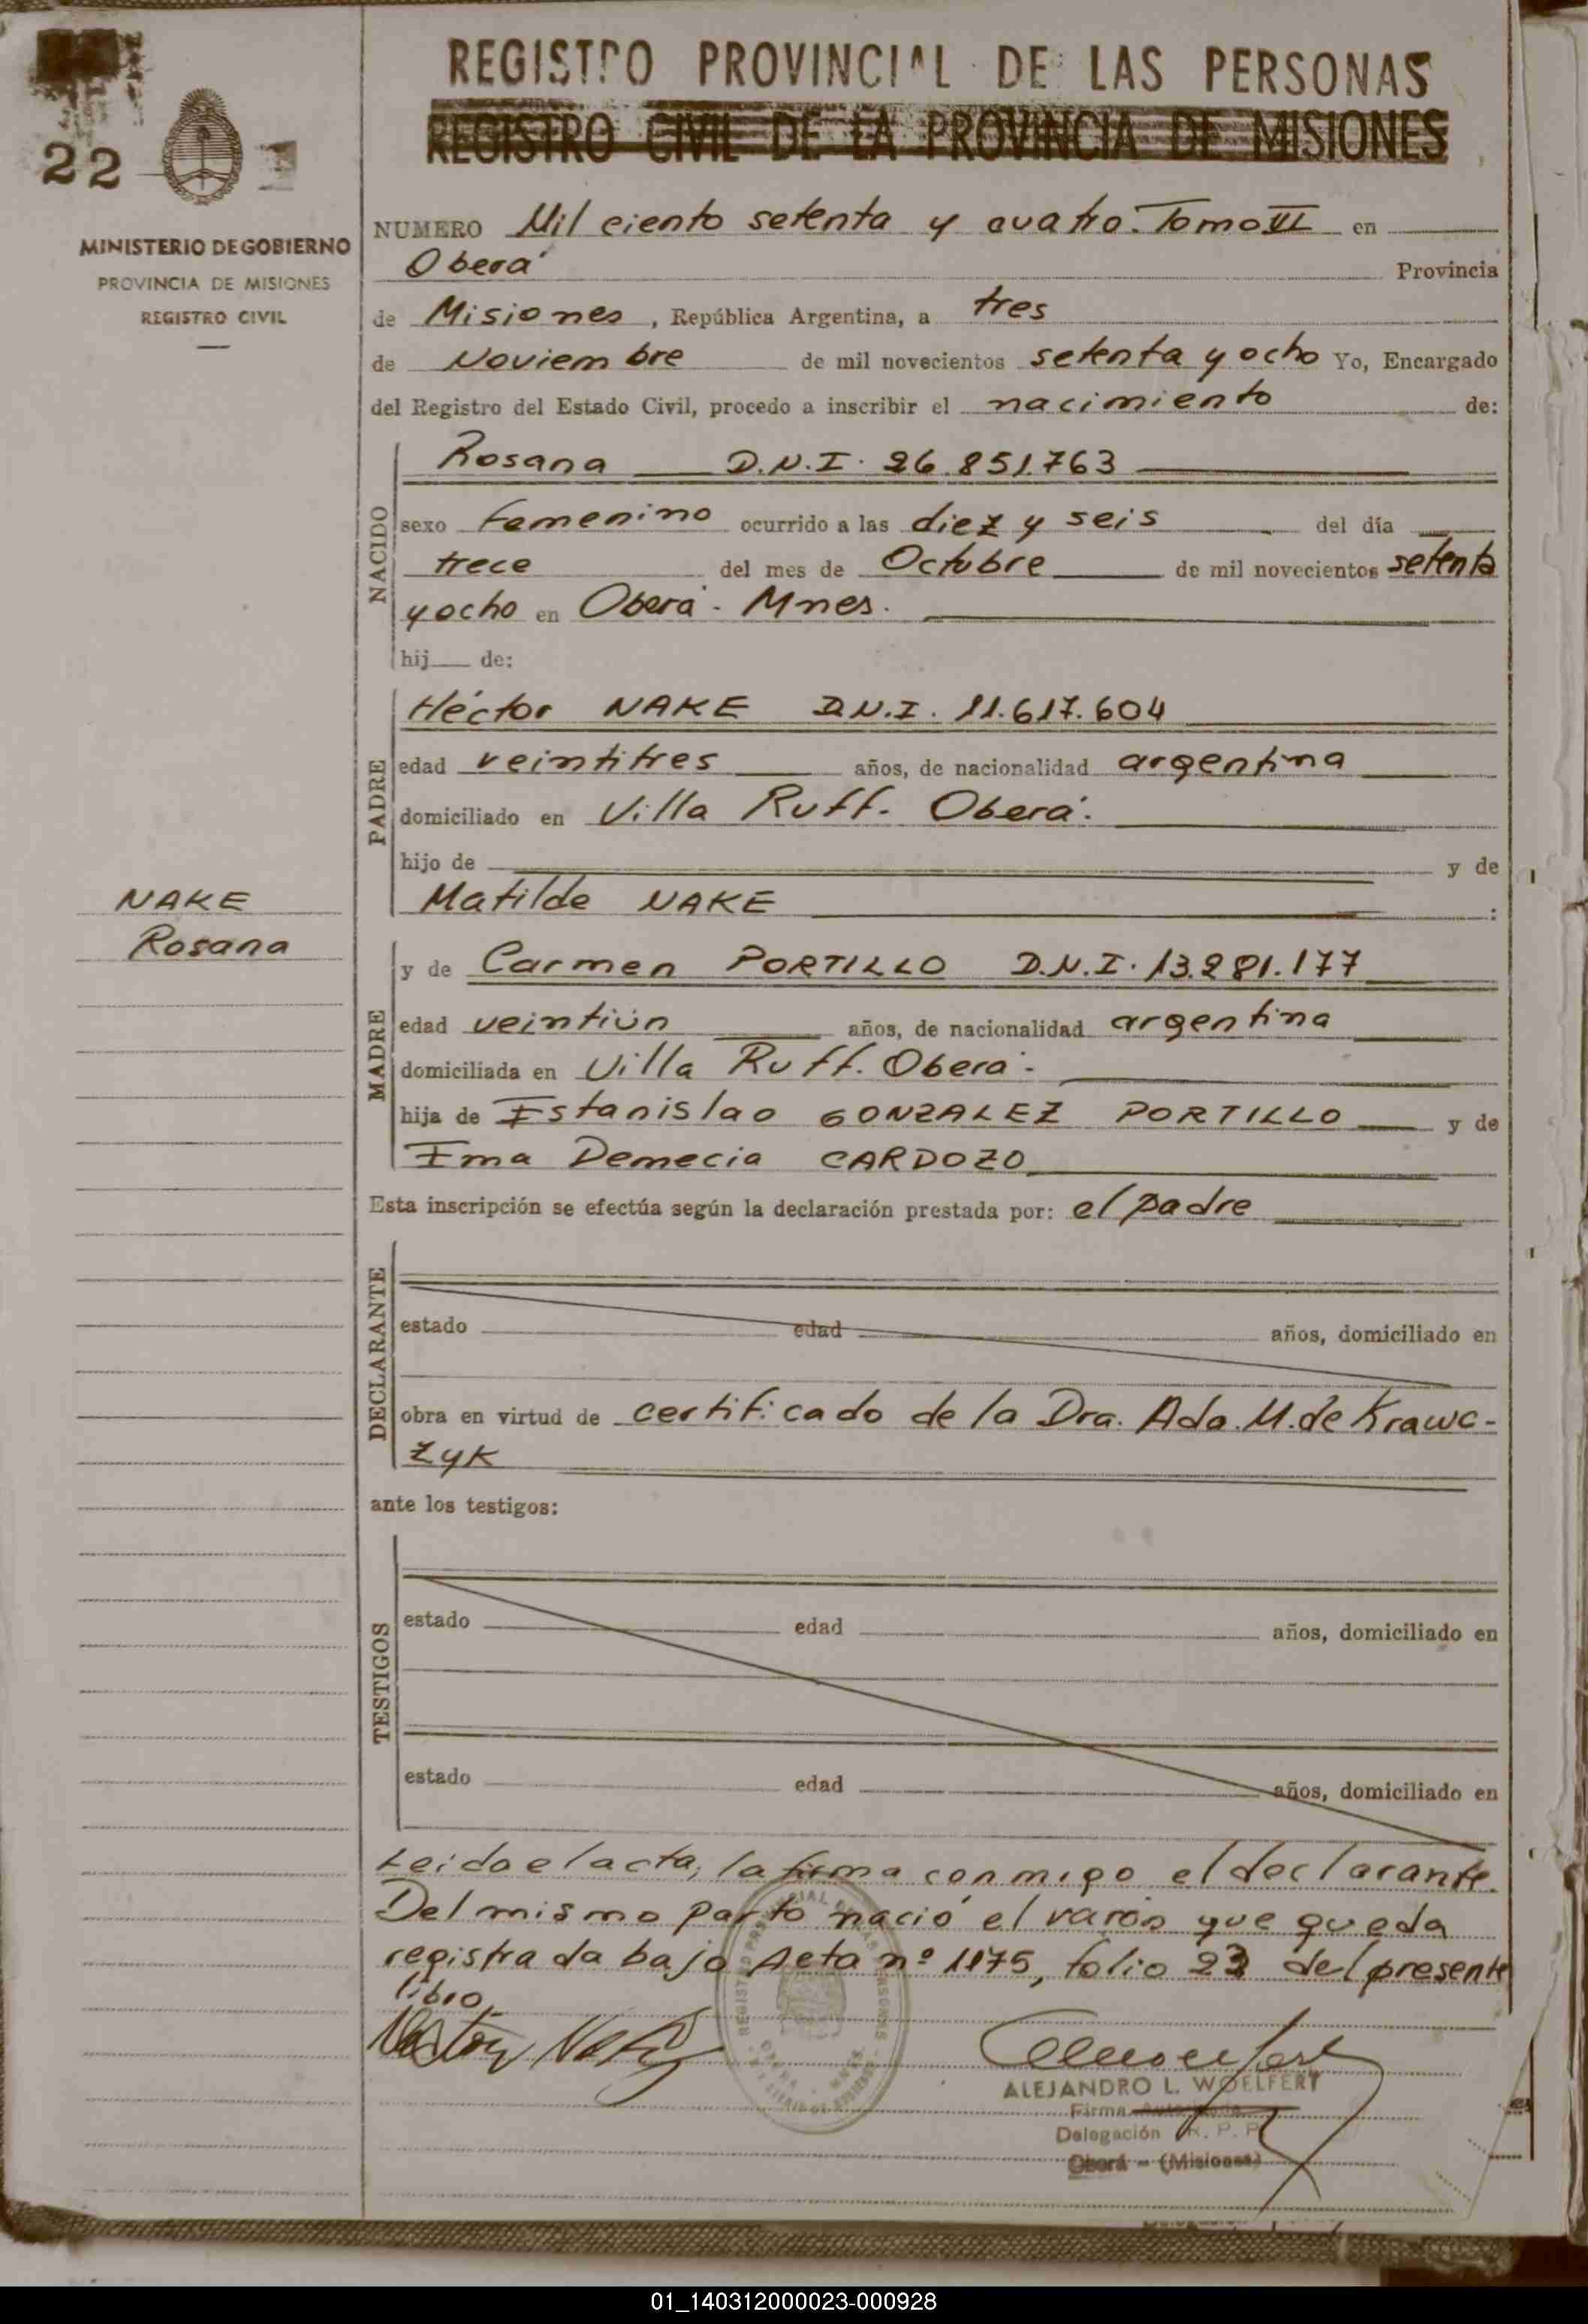 REGISTRO PROVINCIAL DE LAS PERSONAS
REGISTRO CIVIL DE LA PROVINCIA DE MISIONES
22
MINISTERIO DE GOBIERNO
PROVINCIA DE MISIONES
REGISTRO CIVIL
NUMERO Mil ciento setenta y cuatro. Tomo VI en
Oberá Provincia
de Misiones, República Argentina, a tres
de Noviembre de mil novecientos setenta y ocho Yo, Encargado
del Registro del Estado Civil, procedo a inscribir el nacimiento de:
NACIDO
Rosana D.N.I. 26.851.763
sexo femenino ocurrido a las diez y seis del día
trece del mes de Octubre de mil novecientos setenta
y ocho en Oberá. Mnes.
hij de:
PADRE
Héctor NAKE D.N.I. 11.617.604
edad veintitres años, de nacionalidad argentina
domiciliado en Villa Ruff. Oberá.
hijo de y de
Matilde NAKE :
NAKE
Rosana
MADRE
y de Carmen PORTILLO D.N.I. 13.281.177
edad veintiún años, de nacionalidad argentina
domiciliada en Villa Ruff. Oberá.
hija de Estanislao GONZALEZ PORTILLO y de
Ema Demecia CARDOZO
Esta inscripción se efectúa según la declaración prestada por: el padre
DECLARANTE
estado edad años, domiciliado en
obra en virtud de certificado de la Dra. Ada. M. de Krawc-
zyk
ante los testigos:
TESTIGOS
estado edad años, domiciliado en
estado edad años, domiciliado en
Leida el acta, la firma conmigo el declarante.
Del mismo parto nació el varón que queda
registrada bajo Acta nº 1175, folio 23 del presente
libro.
ALEJANDRO L. WOELFERT
Firma
Delegación R. P. P.
Oberá - (Misiones)
01_140312000023-000928